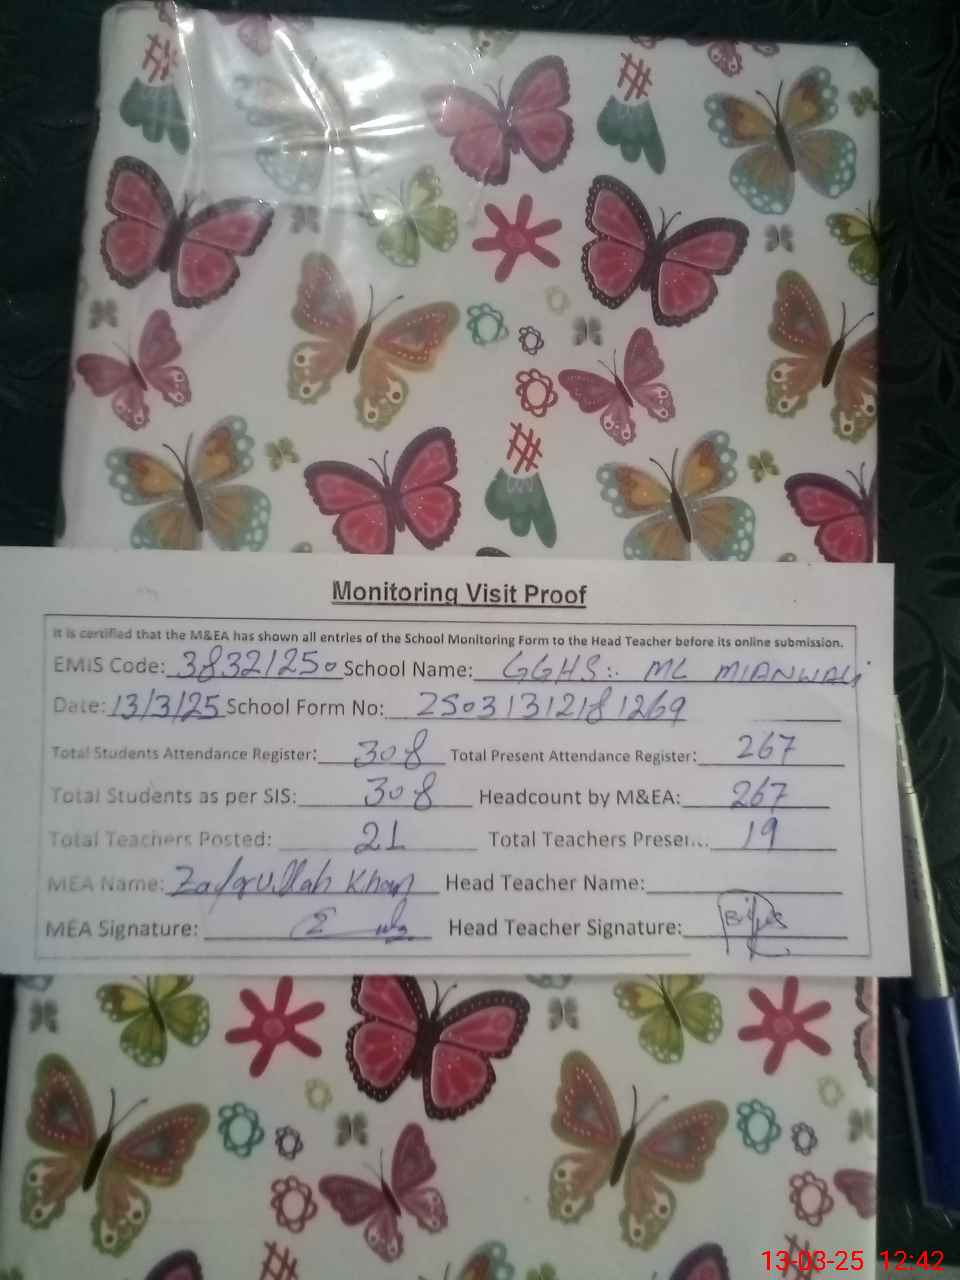 Monitoring Visit Proof
It is certified that the M&EA has shown all entries of the School Monitoring Form to the Head Teacher before its online submission.
EMIS Code: 38321250 School Name: GGHS:. MC MIANWALi
Date: 13/3/25 School Form No: 25031312181269
Total Students Attendance Register: 308 Total Present Attendance Register: 267
Total Students as per SIS: 308 Headcount by M&EA: 267
Total Teachers Posted: 21 Total Teachers Presen... 19
MEA Name: Zafarullah Khan Head Teacher Name:
MEA Signature: Head Teacher Signature:
13-03-25 12:42